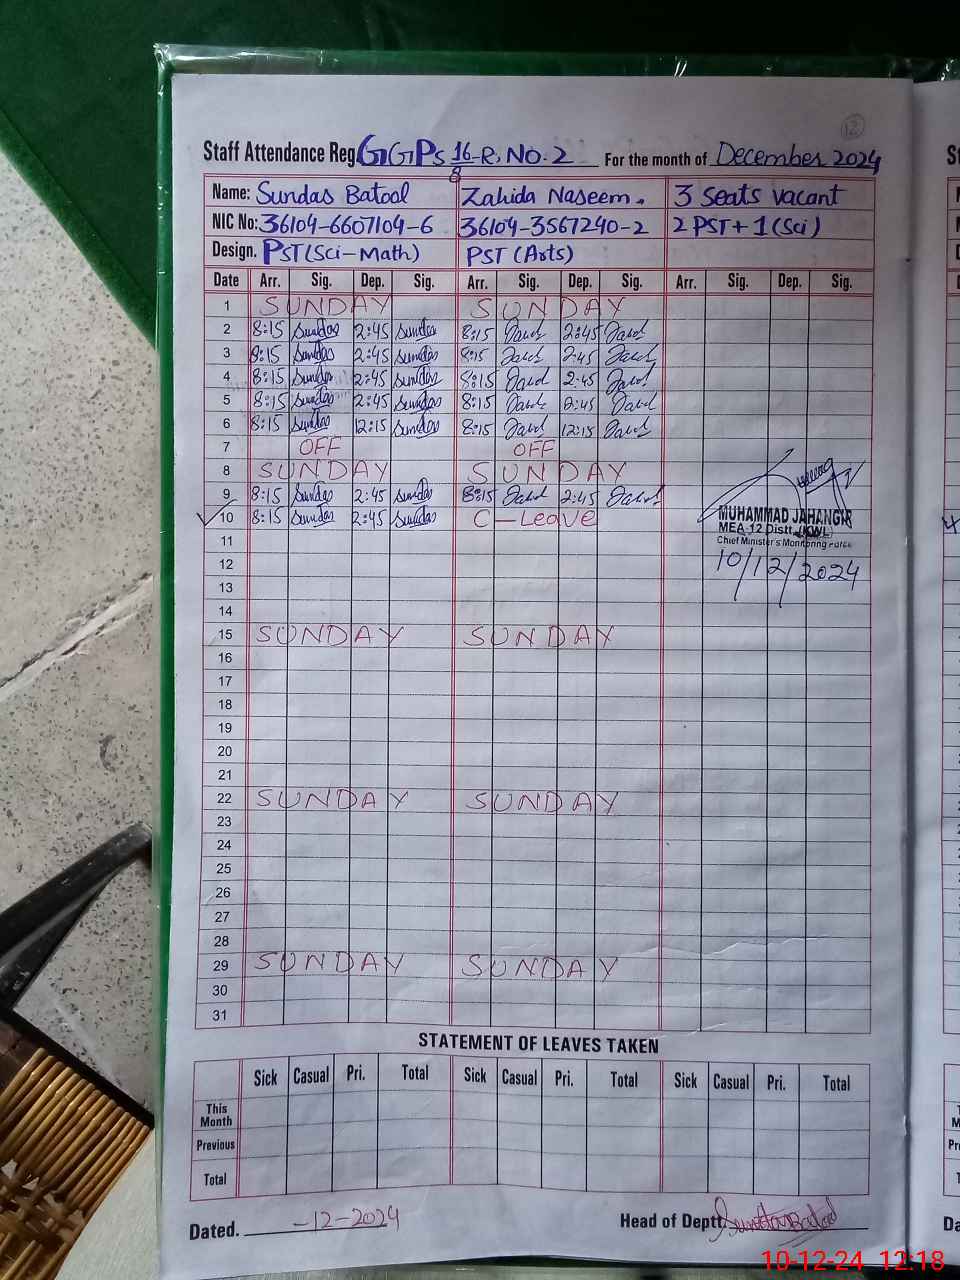 12
Staff Attendance Reg. GGPS 16/8-R, NO. 2 For the month of December 2024
Name: Sundas Batool Zahida Naseem. 3 seats vacant
NIC No: 36104-6607104-6 36104-3567240-2 2 PST + 1 (Sci)
Design. PST (Sci-Math) PST (Arts)
Date Arr. Sig. Dep. Sig. Arr. Sig. Dep. Sig. Arr. Sig. Dep. Sig.
1 SUNDAY SUNDAY
2 8:15 Sundas 2:45 Sundas 8:15 2:45
3 8:15 Sundas 2:45 Sundas 8:15 2:45
4 8:15 Sundas 2:45 Sundas 8:15 2:45
5 8:15 Sundas 2:45 Sundas 8:15 2:45
6 8:15 Sundas 12:15 Sundas 8:15 12:15
7 OFF OFF
8 SUNDAY SUNDAY
9 8:15 Sundas 2:45 Sundas 8:15 2:45
10 8:15 Sundas 2:45 Sundas C-Leave
MUHAMMAD JAHANGIR
MEA-12 Distt. (KWL)
Chief Minister's Monitoring Force
10/12/2024
11
12
13
14
15 SUNDAY SUNDAY
16
17
18
19
20
21
22 SUNDAY SUNDAY
23
24
25
26
27
28
29 SUNDAY SUNDAY
30
31
STATEMENT OF LEAVES TAKEN
Sick Casual Pri. Total Sick Casual Pri. Total Sick Casual Pri. Total
This Month
Previous
Total
Dated. -12-2024 Head of Deptt. Sundas Batool
10-12-24 12:18